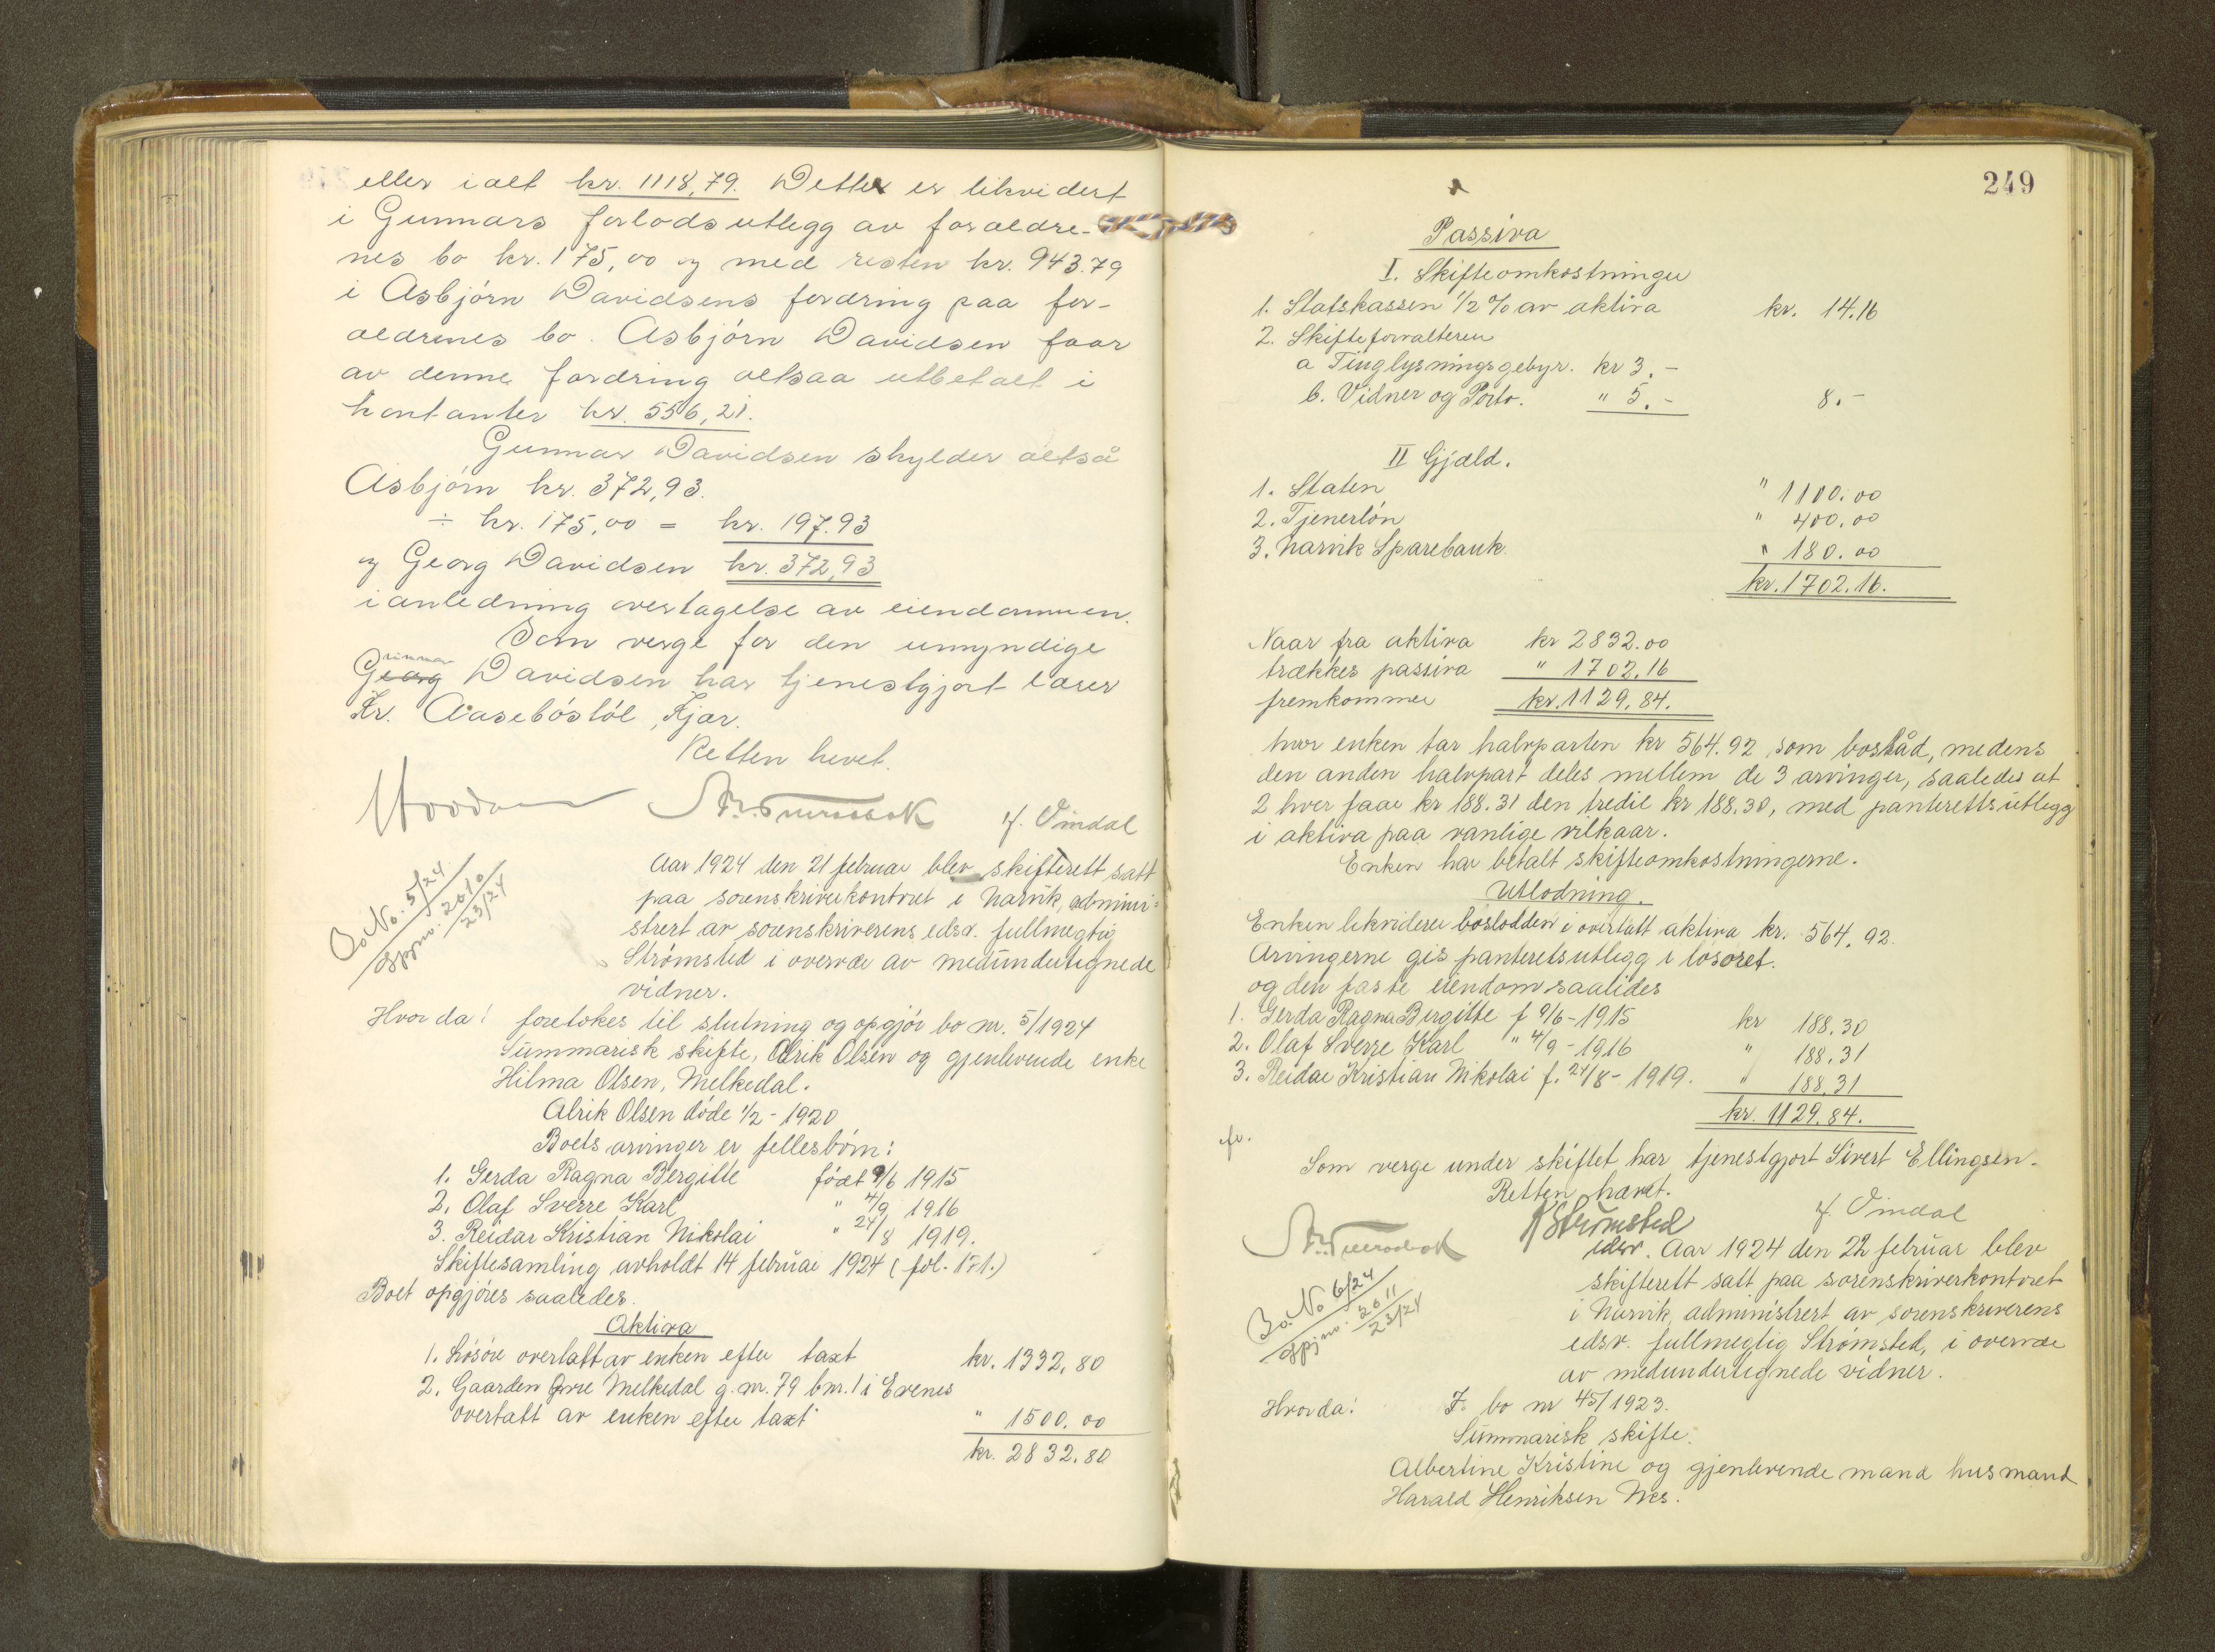 eller ialt kr. 1118,79. Dette er likvidert
i Gunnars forlodsutlegg av foraeldre-
nes bo kr. 175,00 og med resten kr. 943.79
i Asbjörn Davidsens fordring paa for-
aeldrenes bo. Asbjörn Davidsen faar
av denne fordring altsaa utbetalt i
kontanter kr. 556,21.
Gunnar Davidsen skylder altså
Asbjörn kr. 372,93.
÷ kr. 175,00 = kr. 197.93
og Georg Davidsen kr. 372,93
i anledning overtagelse av eiendommen.
Som verge for den umyndige
Gunnar Georg Davidsen har tjenestgjort lærer
Kr. Aaseböstöl, Kjar.
Retten hevet.
J. Vindal
Bo No. 5/24
Gpj no. 2010
23/24
Aar 1924 den 21 februar blev skifterett satt
paa sorenskriverkontoret i Narvik, admini=
strert av sorenskriverens edsv. fullmegtig
Strømsted i overvær av medundertegnede
vidner.
Hvorda: foretokes til slutning og opgjör bo nr. 5/1924
Summarisk skifte, Alrik Olsen og gjenlevende enke
Hilma Olsen, Melkedal.
Alrik Olsen döde 1/2 - 1920
Boets arvinger er fellesbörn:
1. Gerda Ragna Bergitte födt 9/6 1915
2. Olaf Sverre Karl " 4/9 1916
3. Reidar Kristian Nikolai " 24/8 1919.
Skiftesamling avholdt 14 februar 1924 (fol. 171.)
Boet opgjöres saaledes.
Aktiva
1. Lösöre overtatt av enken efter taxt kr. 1332,80
2. Gaarden Övre Melkedal g. nr. 79 bnr. 1 i Evenes
overtatt av enken efter taxt " 1500.00
kr. 2832.80
249
Passiva
I. Skifteomkostninger
1. Statskassen 1/2 % av aktiva kr. 14.16
2. Skifteforvalteren
a Tinglysningsgebyr. kr 3.-
b. Vidner og Porto. " 5.- 8.-
II Gjæld.
1. Staten " 1100.00
2. Tjenerlön " 400.00
3. Narvik Sparebank " 180.00
kr. 1702.16.
Naar fra aktiva kr 2832.00
trækkes passiva " 1702.16
fremkommer kr. 1129,84.
hvor enken tar halvparten kr 564.92 som boslåd, medens
den anden halvpart deles mellem de 3 arvinger, saaledes at
2 hver faar kr 188.31 den tredie kr 188.30, med panteretts utlegg
i aktiva paa vanlige vilkaar.
Enken har betalt skifteomkostningerne.
Utlodning.
Enken likviderer boslodden i overtatt aktiva kr. 564,92.
Arvingerne gis panteretsutlegg i lösöret.
og den faste eiendom saalides
1. Gerda Ragna Bergitte f 9/6 - 1915 kr 188.30
2. Olaf Sverre Karl " 4/9 - 1916 " 188.31
3. Reidar Kristian Nikolai f. 24/8 - 1919. " 188.31
kr. 1129.84.
Som verge under skiftet har tjenestgjort Sivert Ellingsen.
Retten hævet.
K Strömsted J. Vindal
edsv. Aar 1924 den 22 februar blev
Bo. No 6/24
Gpj no. 2011
23/24
skifterett satt paa sorenskriverkontoret
i Narvik, administrert av sorenskriverens
edsv. fullmegtig Strømsted, i overvær
av medundertegnede vidner.
Hvorda: F. bo nr 45/1923.
Summarisk skifte.
Albertine Kristine og gjenlevende mand husmand
Harald Henriksen Nes.